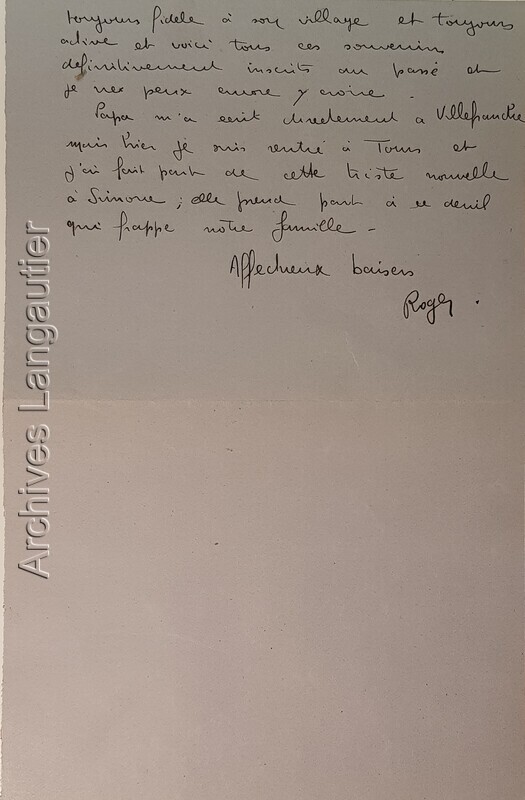 toujours fidèle à son village et toujours
active et voici tous ces souvenirs
définitivement inscrits au passé et
je ne peux encore y croire.
Papa m'a écrit directement à Villefranche
mais hier je suis rentré à Tours et
j'ai fait part de cette triste nouvelle
à Simone ; elle prend part à ce deuil
qui frappe notre famille -
Affectueux baisers
Roger.
Archives Langautier